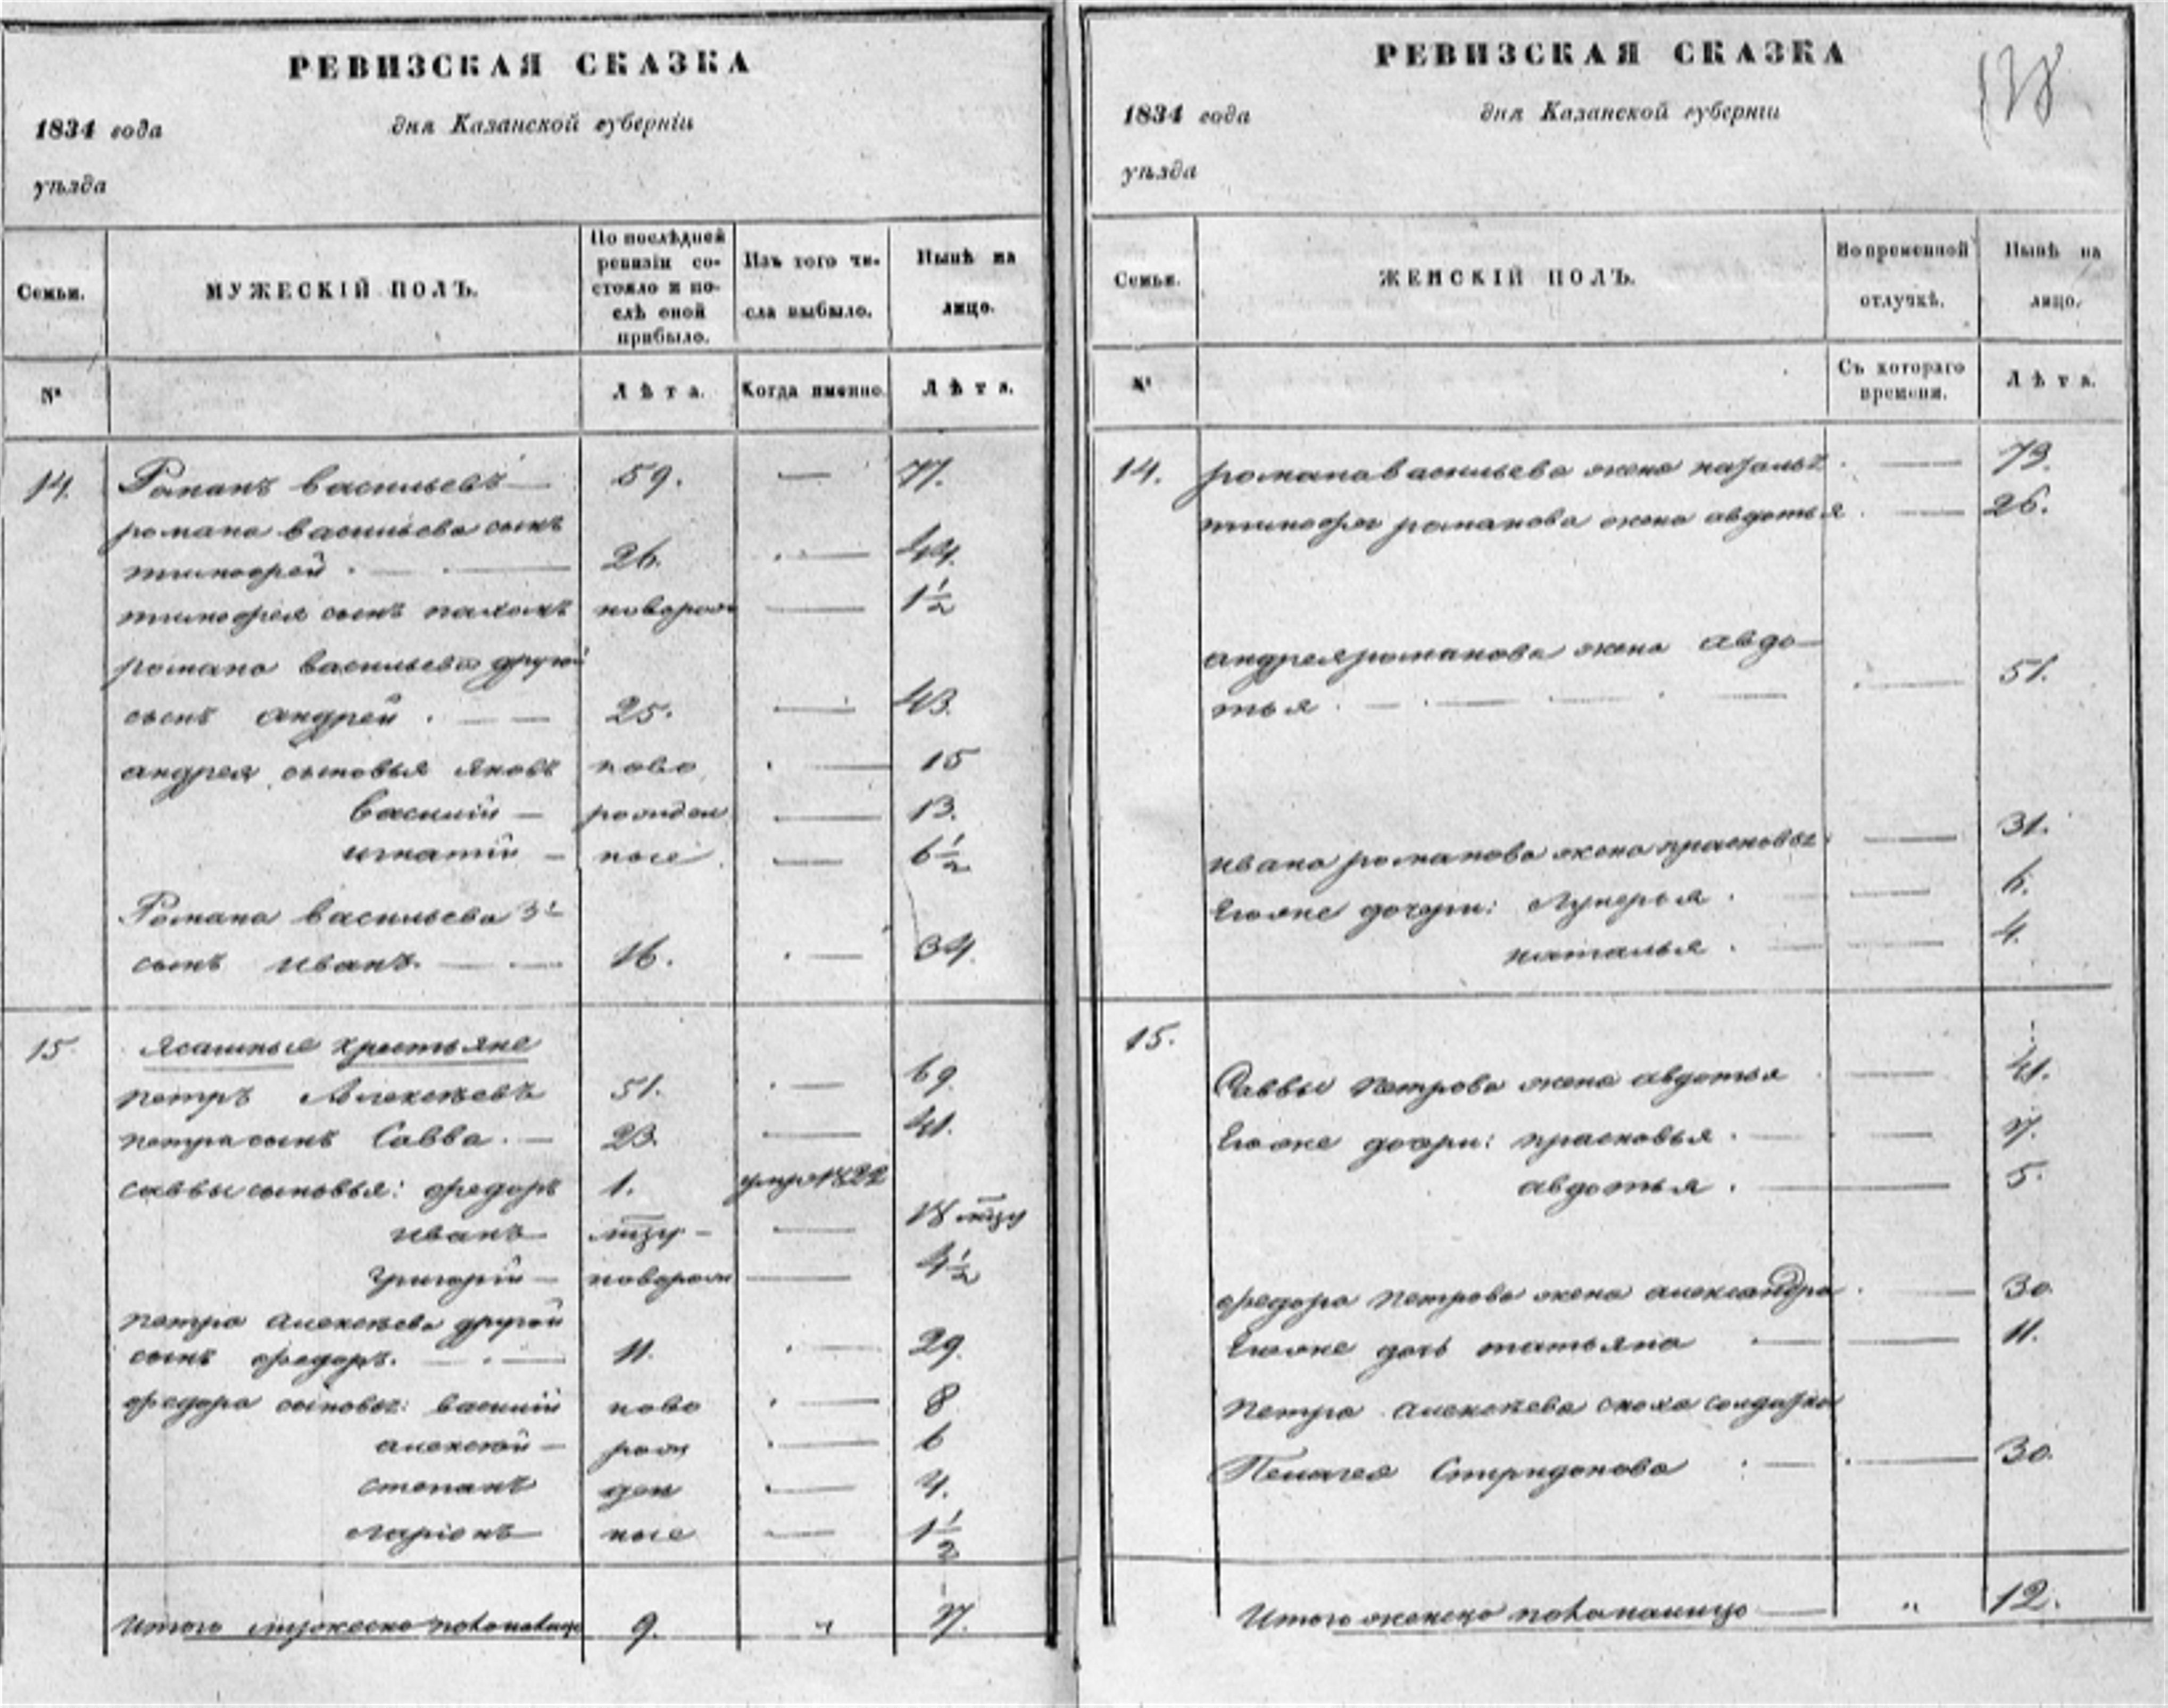 РЕВИЗСКАЯ СКАЗКА
1834 года дня Казанской губерніи
уѣзда
Семьи.
МУЖЕСКІЙ ПОЛЪ.
По послѣдней ревизіи состояло и послѣ оной прибыло.
Изъ того числа выбыло.
Нынѣ на лицо.
№
Лѣта.
Когда именно.
Лѣта.
14. Романъ Васильевъ 59. — 77.
романа васильева сынъ
тимофей 26. — 44.
тимофея сынъ пахомъ новорож — 1½
романа васильева другой
сынъ андрей 25. — 43.
андрея сыновья яковъ ново — 15
василій — рожден — 13.
игнатій — ные — 6½
Романа васильева 3й
сынъ иванъ. 16. — 34.
15 ясашные крестьяне
петръ Алексѣевъ 51. — 69.
петра сынъ Савва. — 23. — 41.
саввы сыновья: федоръ 1. умре 1822
иванъ — тзу — — 18 тзу
григорій — новорож — 4½
петра алексѣева другой
сынъ федоръ. 11. — 29.
федора сыновья: василій ново — 8
алексѣй — рож — 6
степанъ ден — 4.
ларіонъ ные — 1½
итого мужеска пола налицо 9. „ 17.
РЕВИЗСКАЯ СКАЗКА
1834 года дня Казанской губерніи
уѣзда
Семьи.
ЖЕНСКІЙ ПОЛЪ.
Во временной отлучкѣ.
Нынѣ на лицо.
№
Съ котораго времени.
Лѣта.
14. романа васильева жена наталья — 73.
тимофея романова жена авдотья — 26.
андрея романова жена авдо-
тья — 51.
ивана романова жена прасковья — 31.
Егоже дочери: Лукерья — 6.
наталья — 4.
15.
Саввы петрова жена авдотья — 41.
Егоже дочри: прасковья — 7.
авдотья — 5.
федора петрова жена александра — 30.
Егоже дочь татьяна — 11.
петра алексѣева сноха солдатка
Пелагея Спиридонова — 30.
Итого женска пола налицо — „ 12.